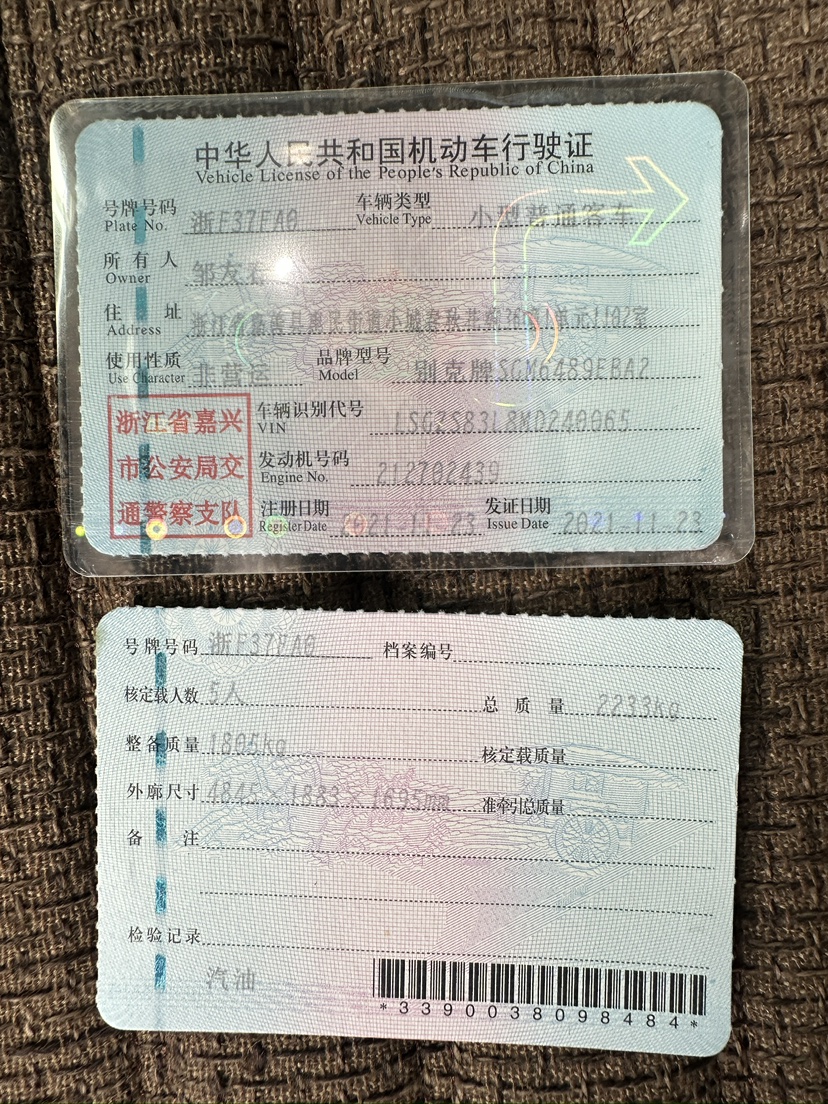 中华人民共和国机动车行驶证
Vehicle License of the People's Republic of China
号牌号码 浙F37FA0 车辆类型 小型普通客车
Plate No. Vehicle Type
所有人 邹友
Owner
住址 浙江省嘉善县惠民街道小城春秋 1单元1102室
Address
使用性质 非营运 品牌型号 别克牌SGM6489EBA2
Use Character Model
浙江省嘉兴
市公安局交
通警察支队
车辆识别代号 LSGZS83L8MD240065
VIN
发动机号码 212702439
Engine No.
注册日期 2021-11-23 发证日期 2021-11-23
Register Date Issue Date
号牌号码 浙F37FA0 档案编号
核定载人数 5人 总质量 2233kg
整备质量 1805kg 核定载质量
外廓尺寸 4845×1883×1695mm 准牵引总质量
备注
检验记录
汽油
*3390038098484*